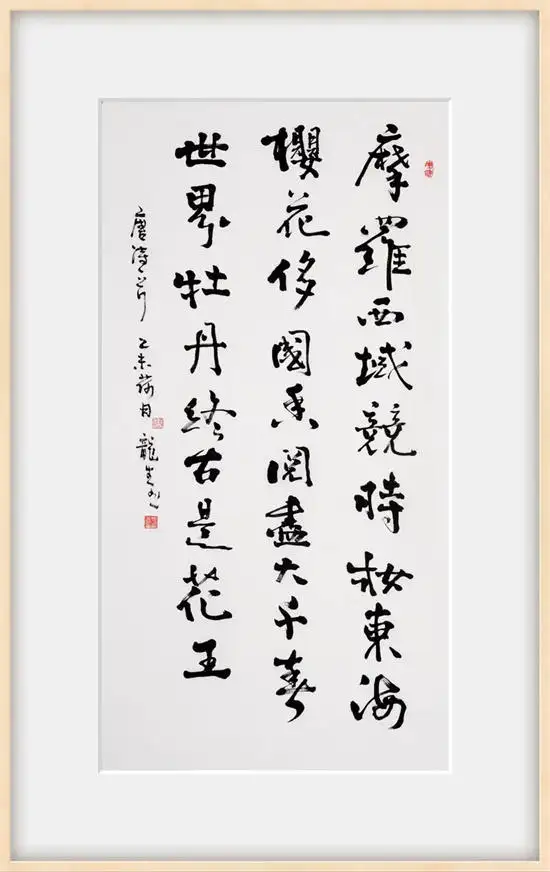 摩羅西域競時妝東海
櫻花侈國香閱盡大千春
世界牡丹終古是花王
唐詩 乙未荷月 龍生